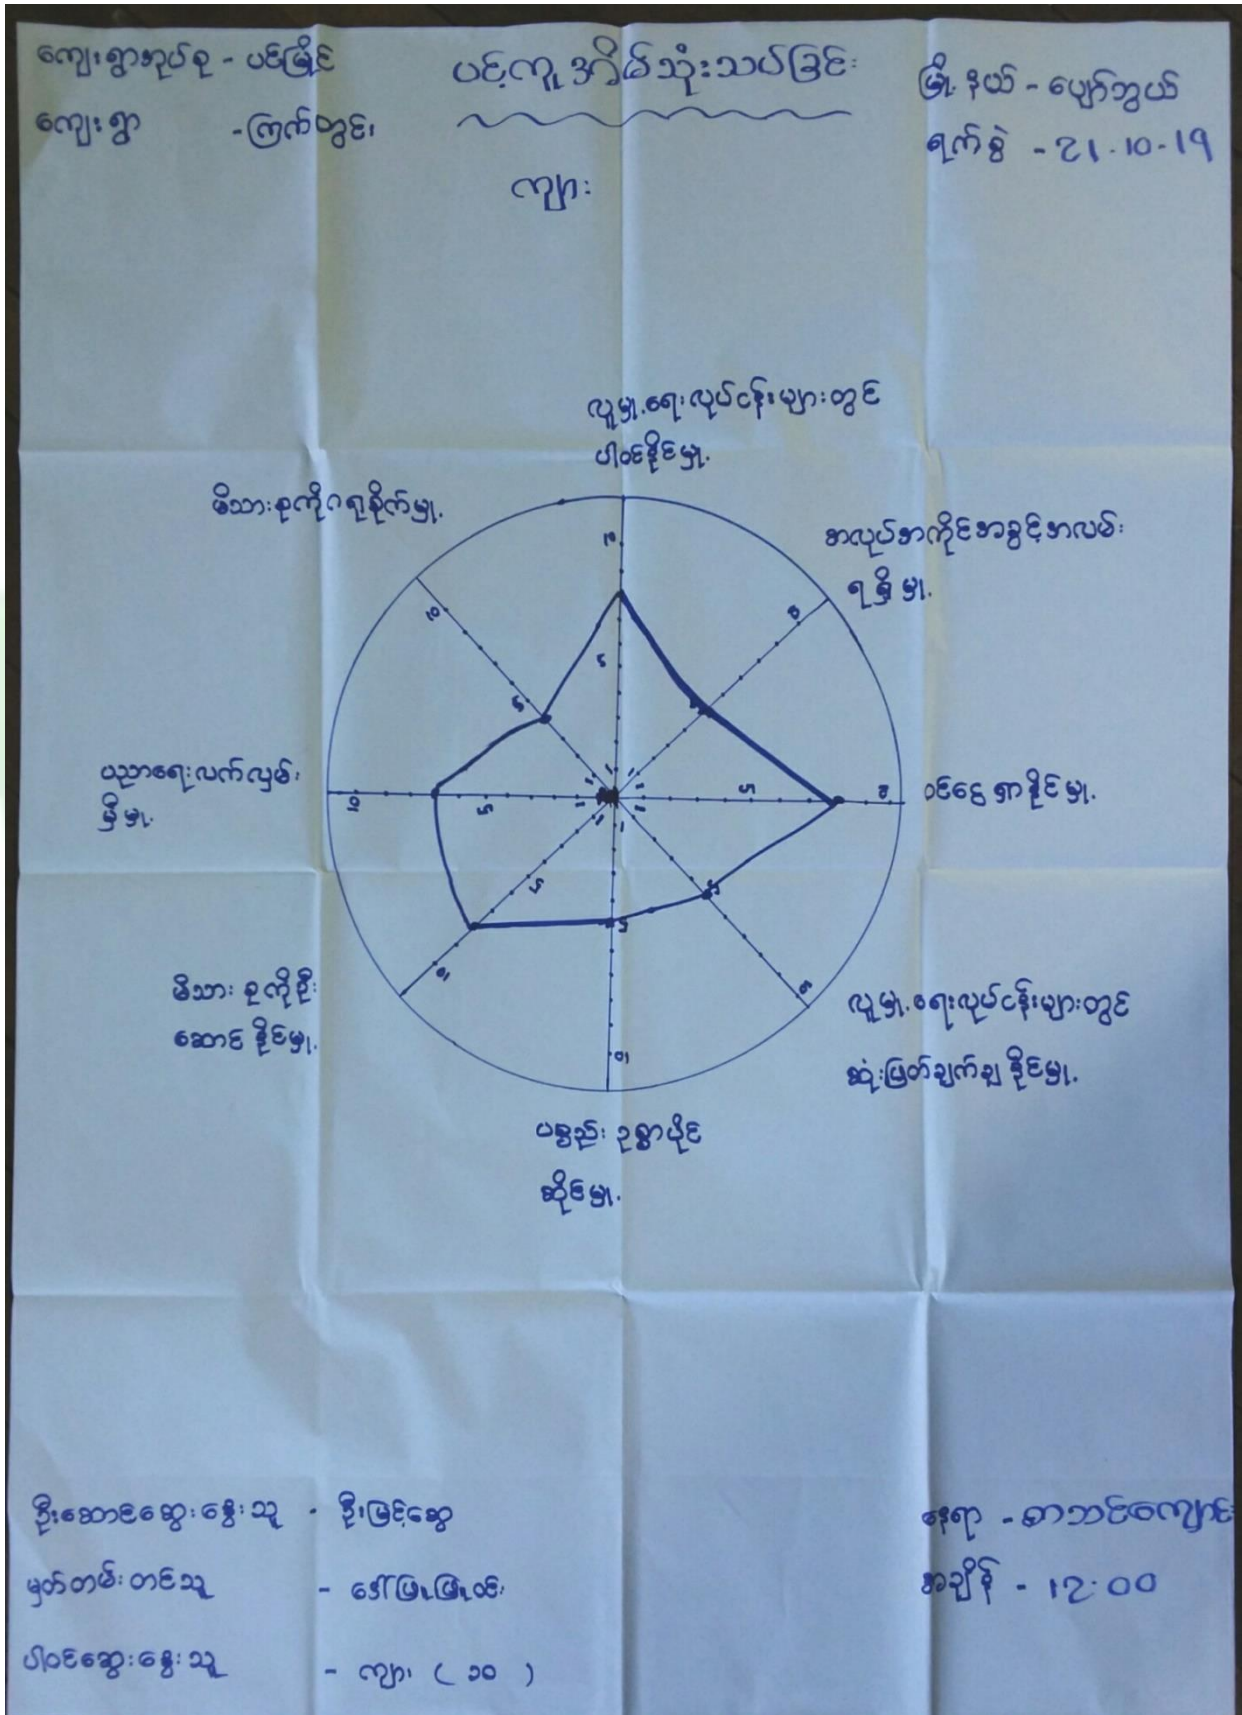 ကျေးရွာအုပ်စု - ပင်မြိုင်
ကျေးရွာ - ကြက်တွင်း
ပင့်ကူအိမ်သုံးသပ်ခြင်း
ကျား
မြို့နယ် - ပျော်ဘွယ်
ရက်စွဲ - 21.10.19
လူမှုရေးလုပ်ငန်းများတွင်
ပါဝင်နိုင်မှု
အလုပ်အကိုင်အခွင့်အလမ်း
ရရှိမှု
ဝင်ငွေရှာနိုင်မှု
လူမှုရေးလုပ်ငန်းများတွင်
ဆုံးဖြတ်ချက်ချနိုင်မှု
ပစ္စည်းဥစ္စာပိုင်
ဆိုင်မှု
မိသားစုကိုဦး
ဆောင်နိုင်မှု
ပညာရေးလက်လှမ်း
မှီမှု
မိသားစုကိုဂရုစိုက်မှု
10
5
5
10
5
10
5
10
5
5
10
ဦးဆောင်ဆွေးနွေးသူ - ဦးမြင့်ဆွေ
မှတ်တမ်းတင်သူ - ဒေါ်မြမြဝင်း
ပါဝင်ဆွေးနွေးသူ - ကျား (၁၀)
နေရာ - စာသင်ကျောင်း
အချိန် - 12:00